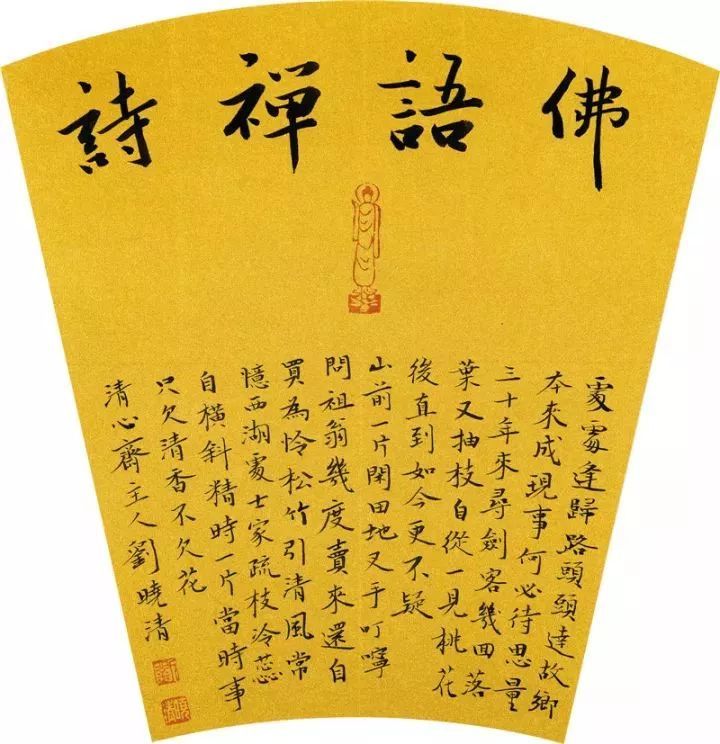 佛語禅詩
處處逢歸路頭頭達故鄉
本來成現事何必待思量
三十年來尋劍客幾回落
葉又抽枝自從一見桃花
後直到如今更不疑
山前一片閑田地叉手叮嚀
問祖翁幾度賣來還自
買為怜松竹引清風常
憶西湖處士家疏枝冷蕊
自橫斜精時一片當時事
只欠清香不欠花
清心齋主人劉曉清